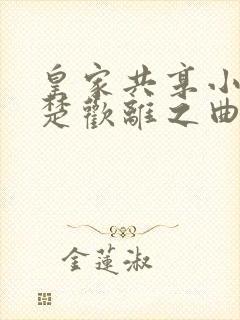 皇家共享小
楚歡離之曲
金蓮淑